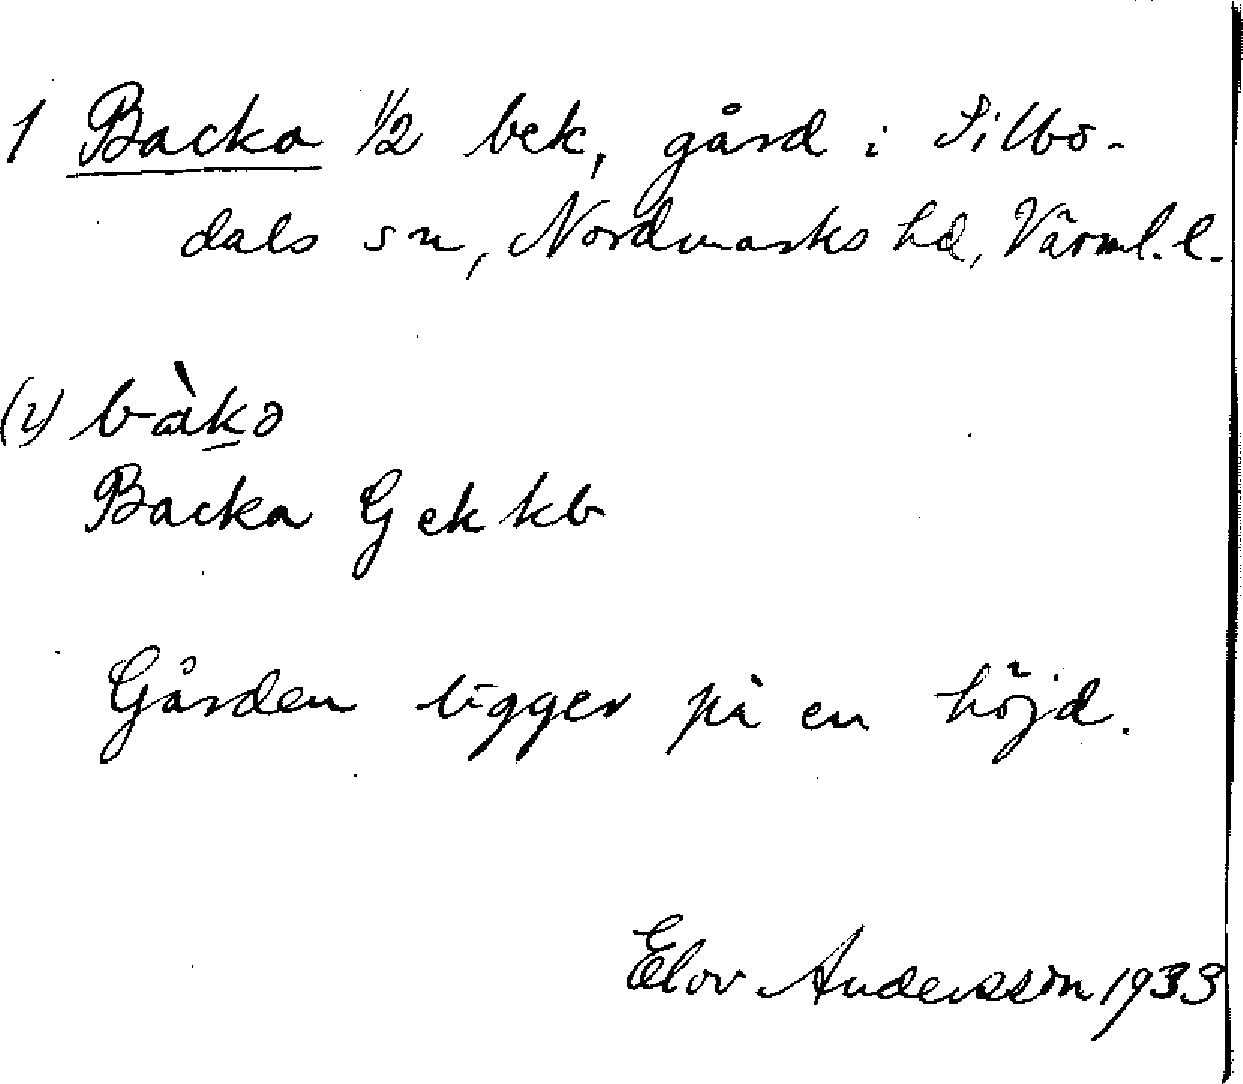 1 Backa 1/2 bek, gård i Silbo-
dals sn, Nordmarks hd, Värml. l.
(i) bàkə
Backa Gek kb
Gården ligger på en höjd.
Elov Andersson 1933